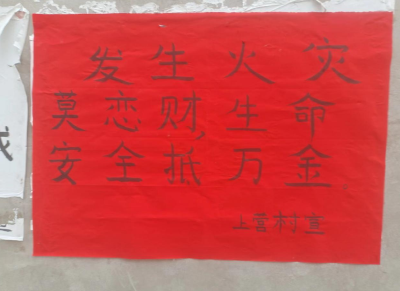 发生火灾
莫恋财,生命
安全抵万金
上营村宣